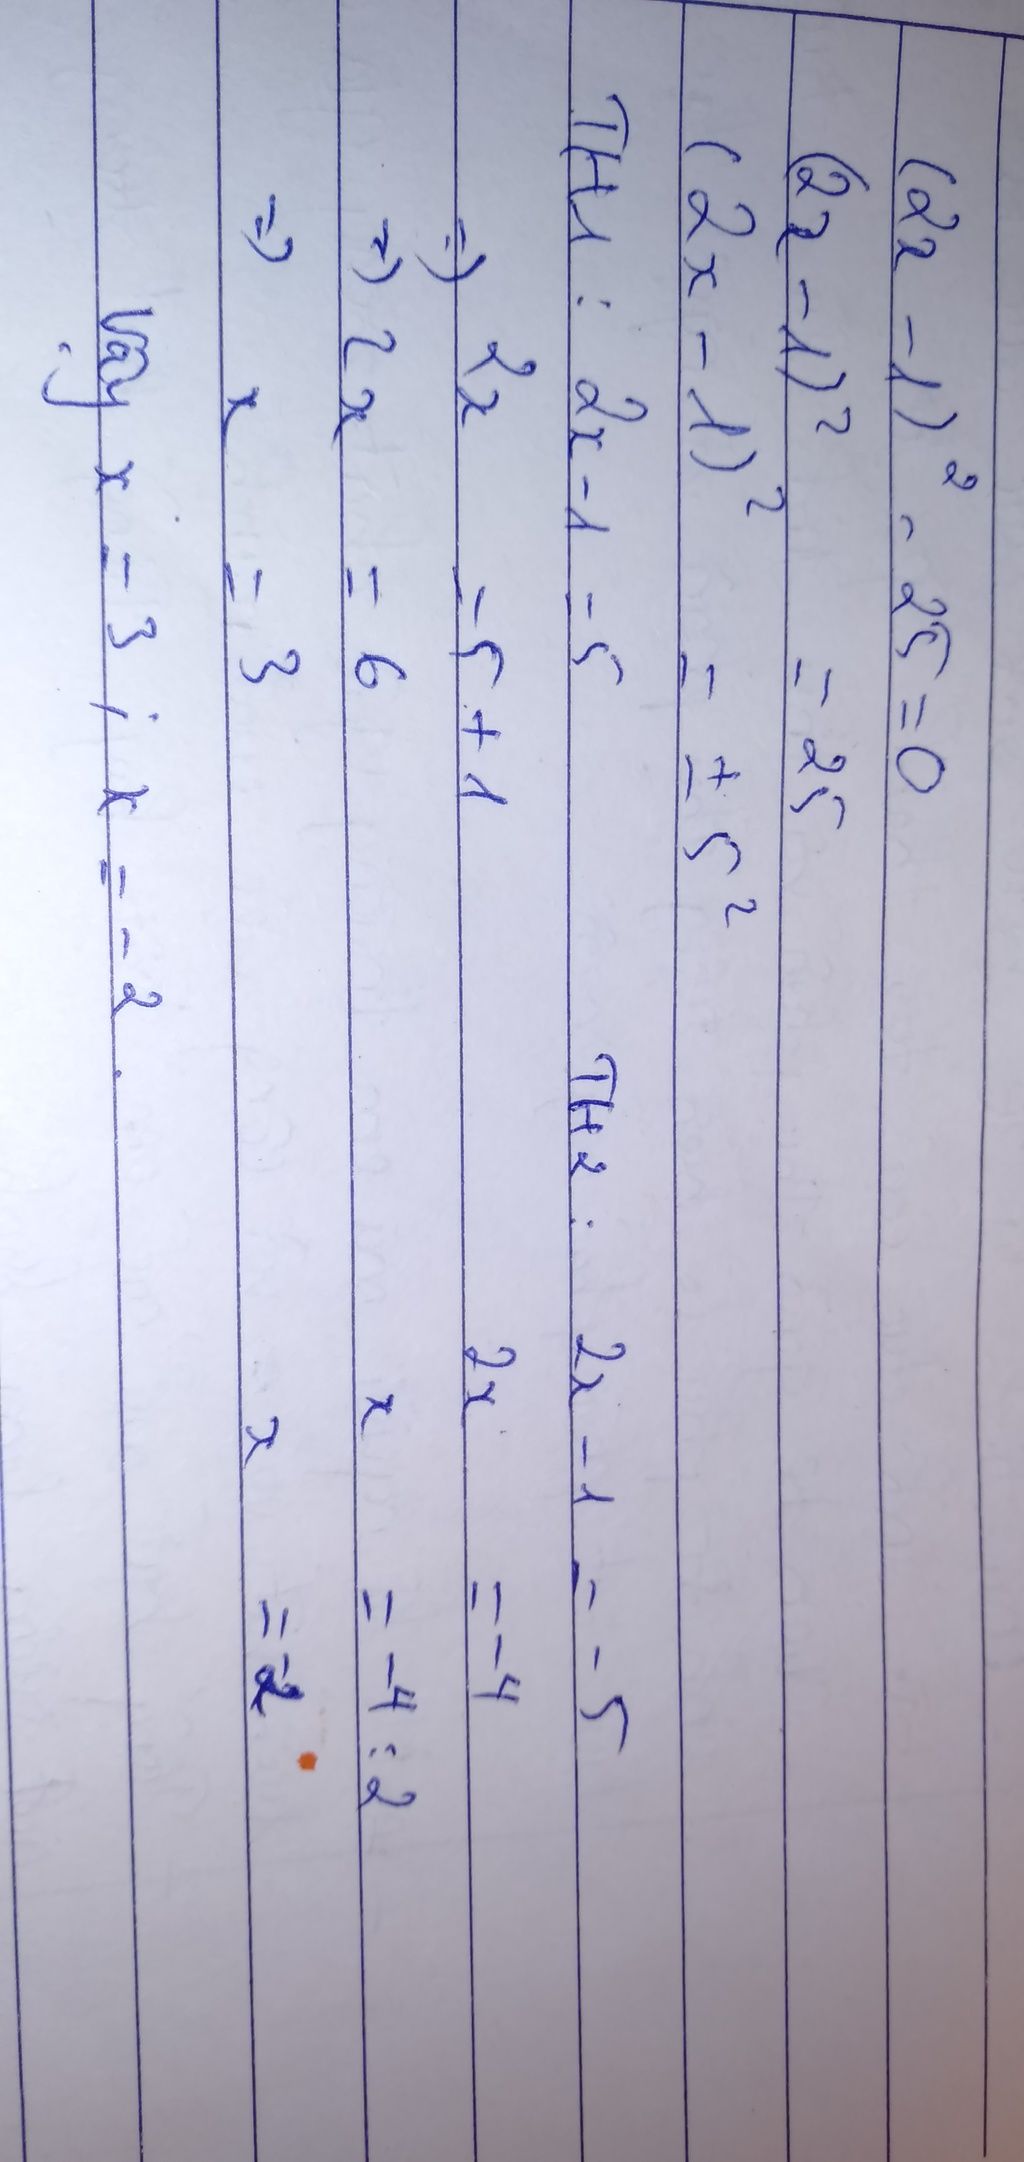 (2x - 1)² - 25 = 0
(2x - 1)² = 25
(2x - 1)² = ± 5²
TH1 : 2x - 1 = 5 TH2 : 2x - 1 = - 5
=) 2x = 5 + 1 2x = - 4
=) 2x = 6 x = - 4 : 2
=) x = 3 x = -2
Vậy x = 3 ; x = - 2 .